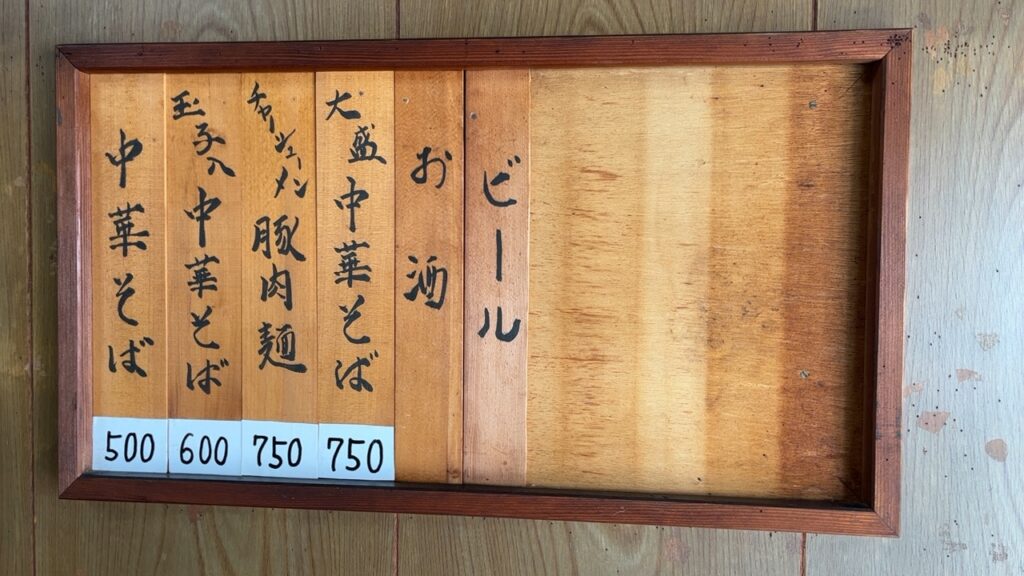 ビール
お酒
大盛中華そば
750
チャーシューメン豚肉麺
750
玉子入中華そば
600
中華そば
500